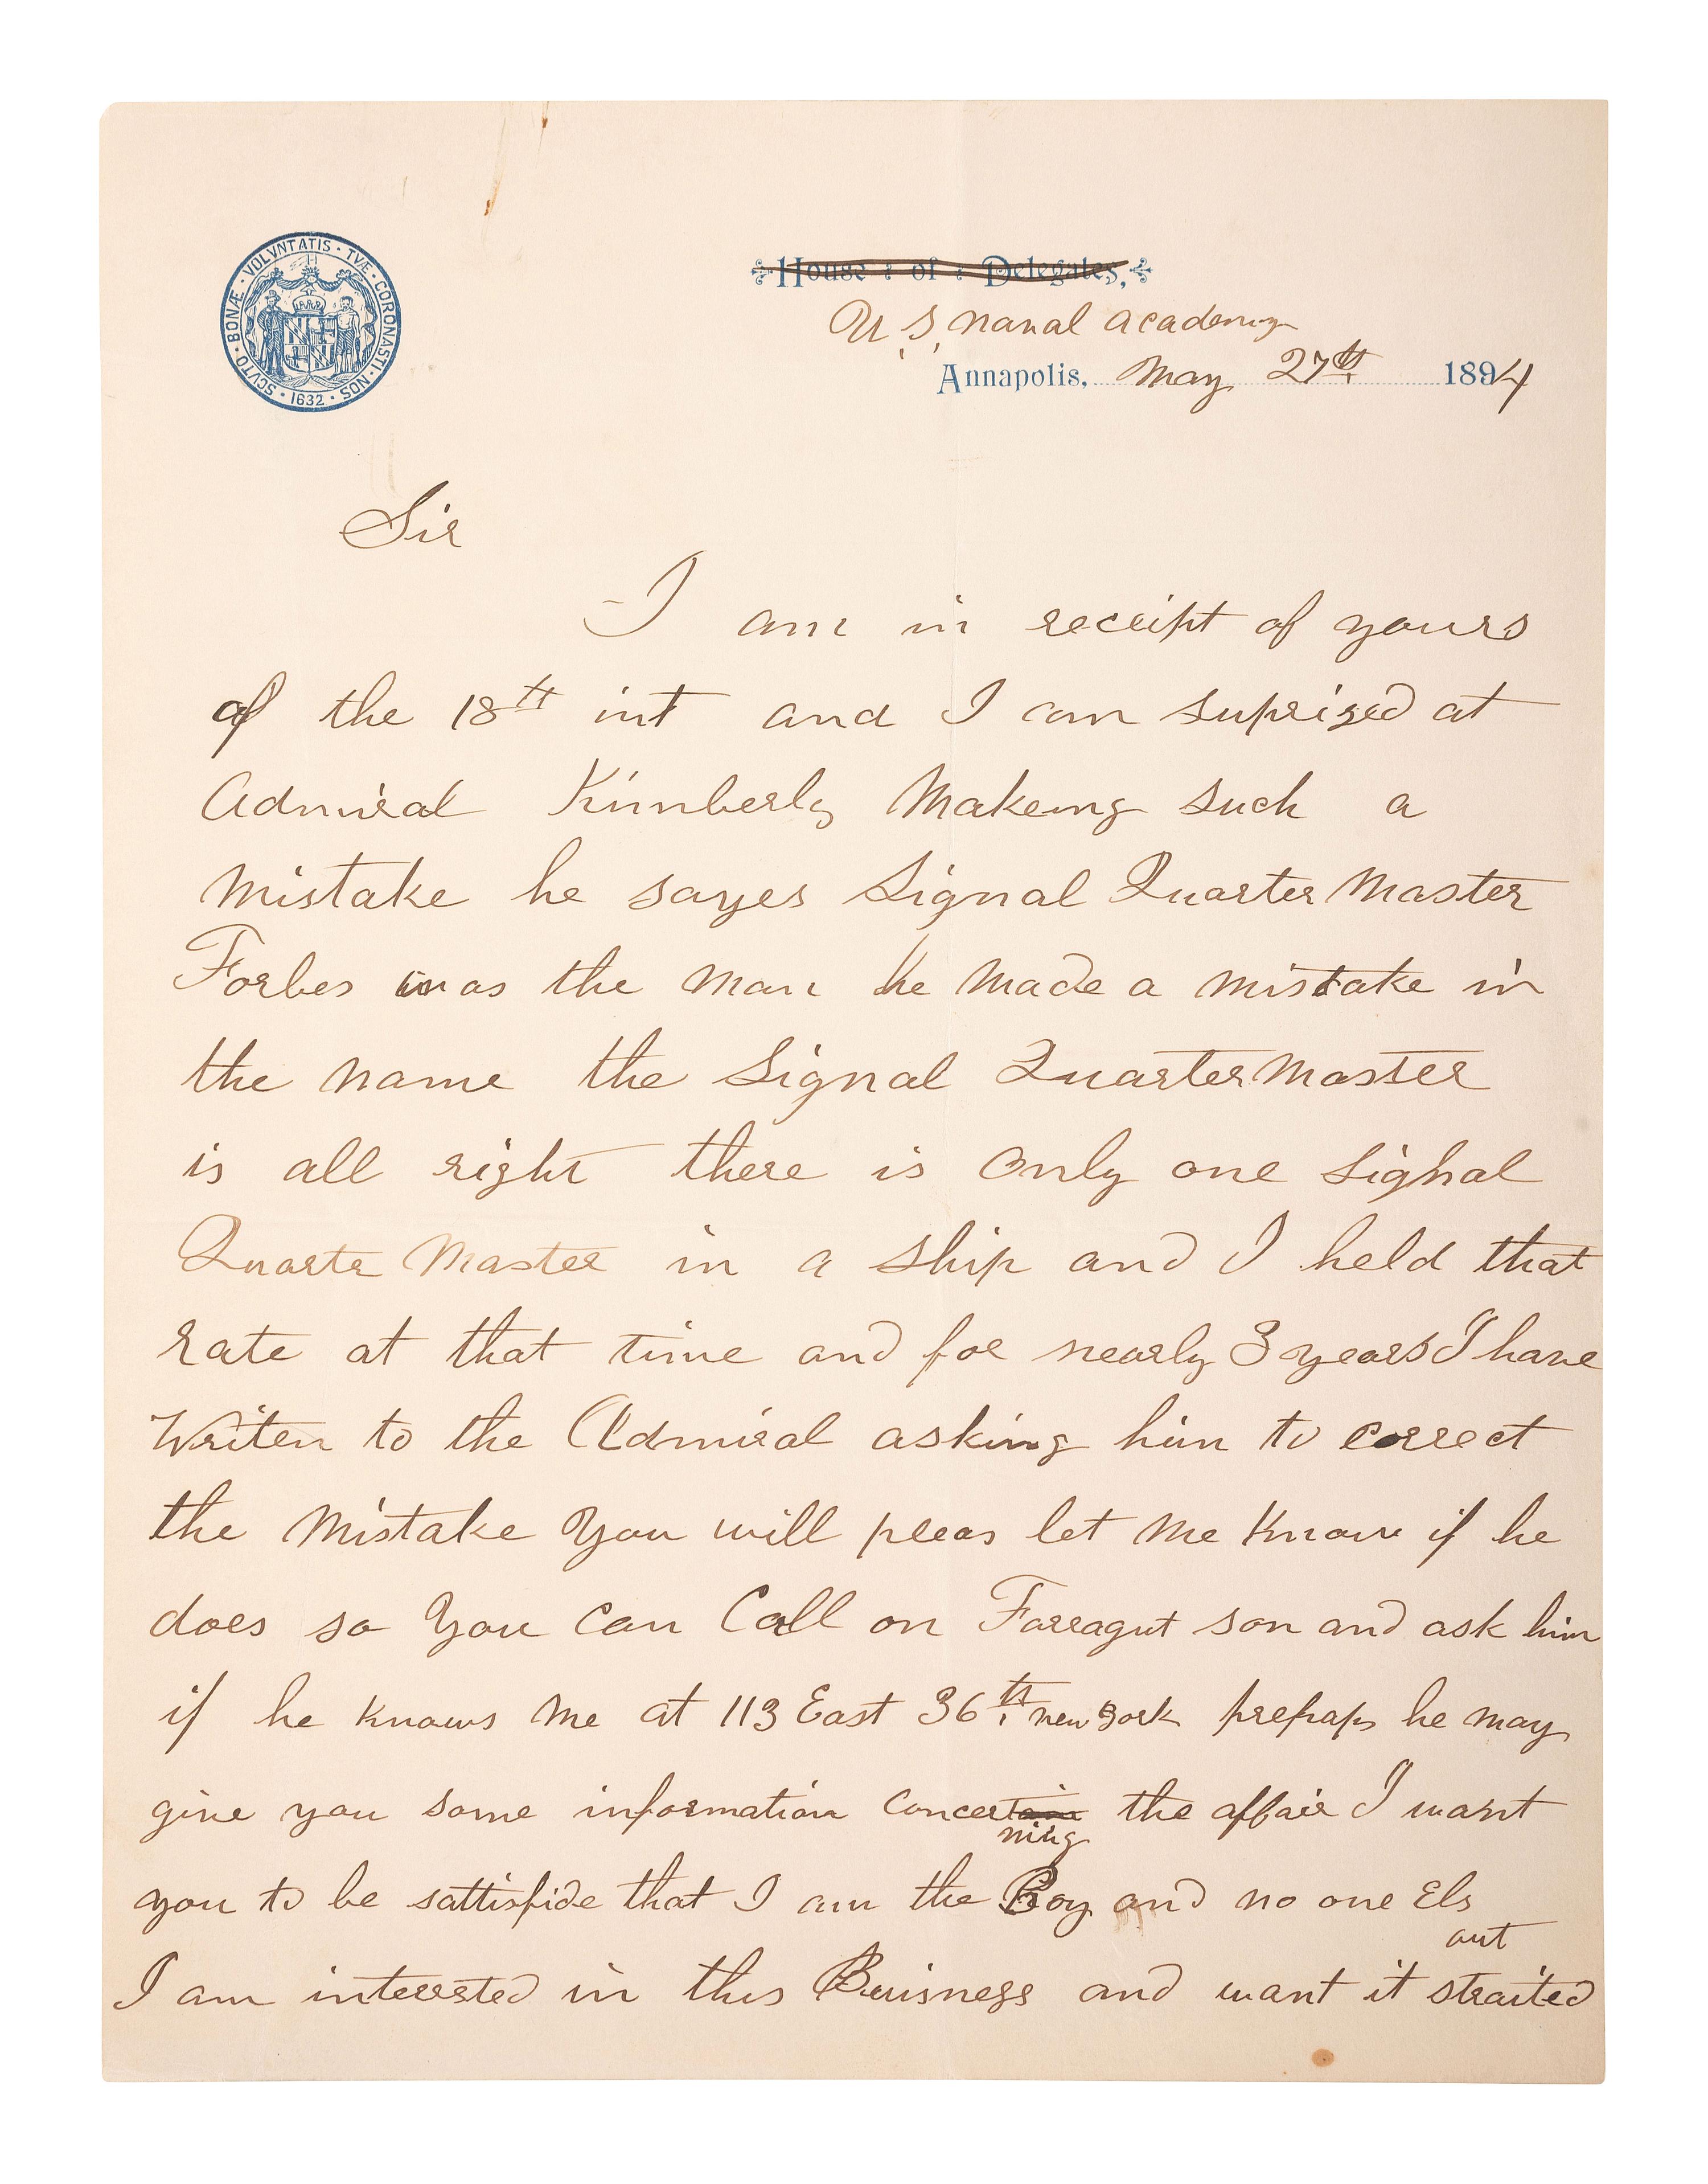 SCVTO · BONÆ · VOLVNTATIS · TVÆ · CORONASTI · NOS · 1632 ·
House : of : Delegates,
U.S. naval academy
Annapolis, May 27th 1894
Sir
I am in receipt of yours
of the 18th int and I am suprised at
Admiral Kimberly Makeing such a
Mistake he sayes Signal Quarter Master
Forbes was the man he made a mistake in
the name the Signal QuarterMaster
is all right there is only one Signal
Quarte Master in a ship and I held that
rate at that time and for nearly 3 years I have
Writen to the Admiral asking him to correct
the Mistake You will pleas let me Know if he
does so You can Call on Farragut son and ask him
if he knows me at 113 East 36th new york prehaps he may
give you some information concertain the affair I want
ning
you to be sattisfide that I am the Boy and no one Els
out
I am interested in this Buisness and want it straited